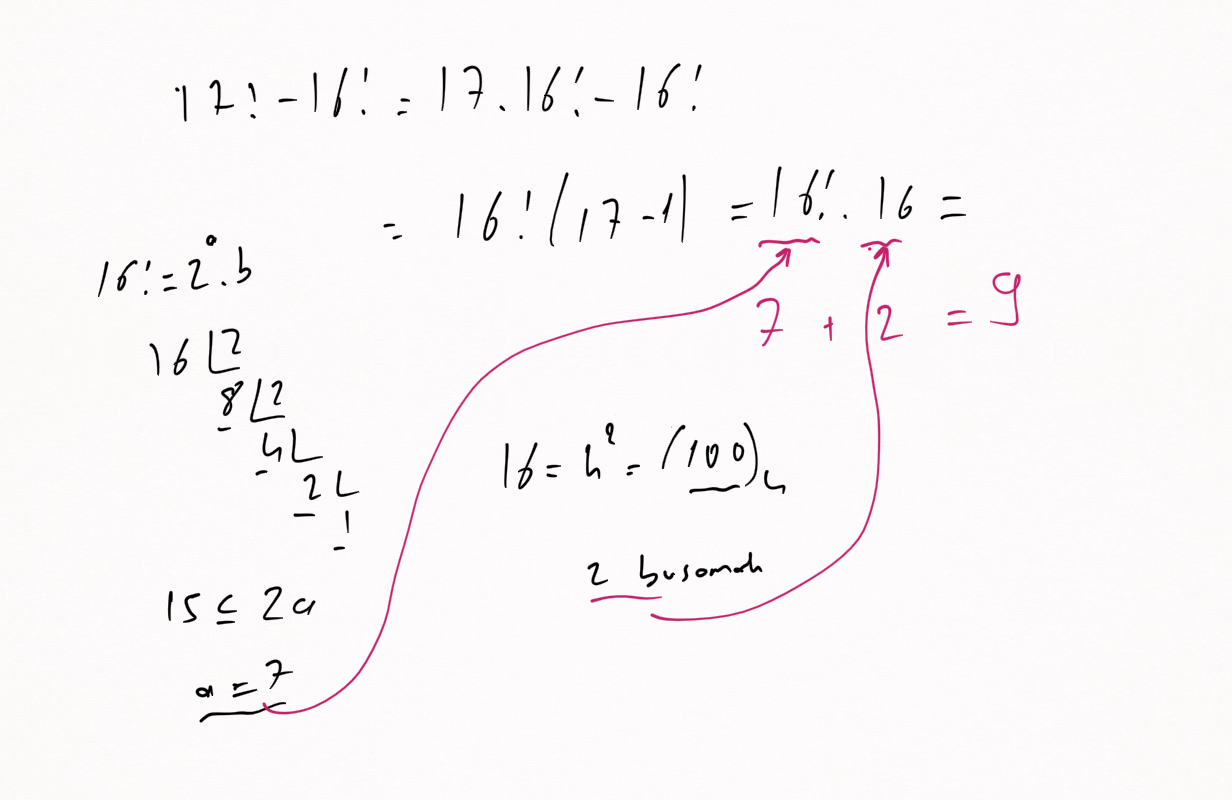 17! - 16! = 17 . 16! - 16!
= 16! (17 - 1) = 16! . 16 =
7 + 2 = 9
16! = 2^a . b
16 2
8 2
4
2
1
15 ≤ 2a
a = 7
16 = 4² = (100)₄
2 basamak